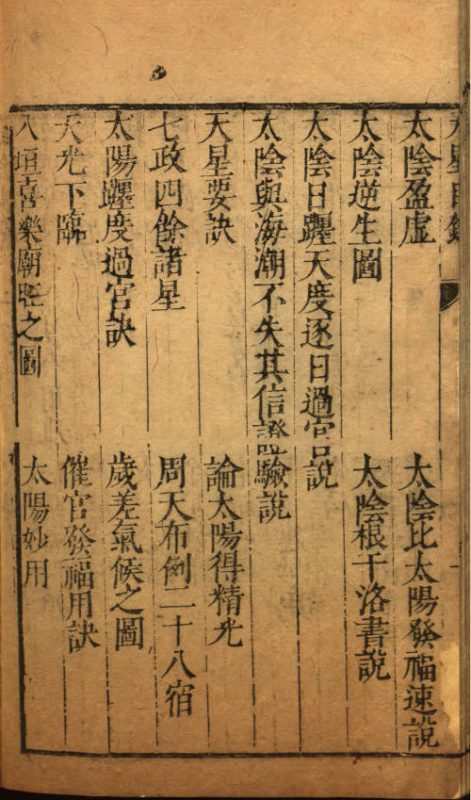 天星目錄
太陰盈虛　太陰比太陽發福速說
太陰逆生圖　太陰根于洛書說
太陰日躔天度逐日過宮吉說
太陰與海潮不失其信證驗說
天星要訣　論太陽得精光
七政四餘諸星　周天布例二十八宿
太陽躔度過官訣　歲差氣候之圖
天光下臨　催官發福用訣
八垣喜樂廟旺之圖　太陽妙用